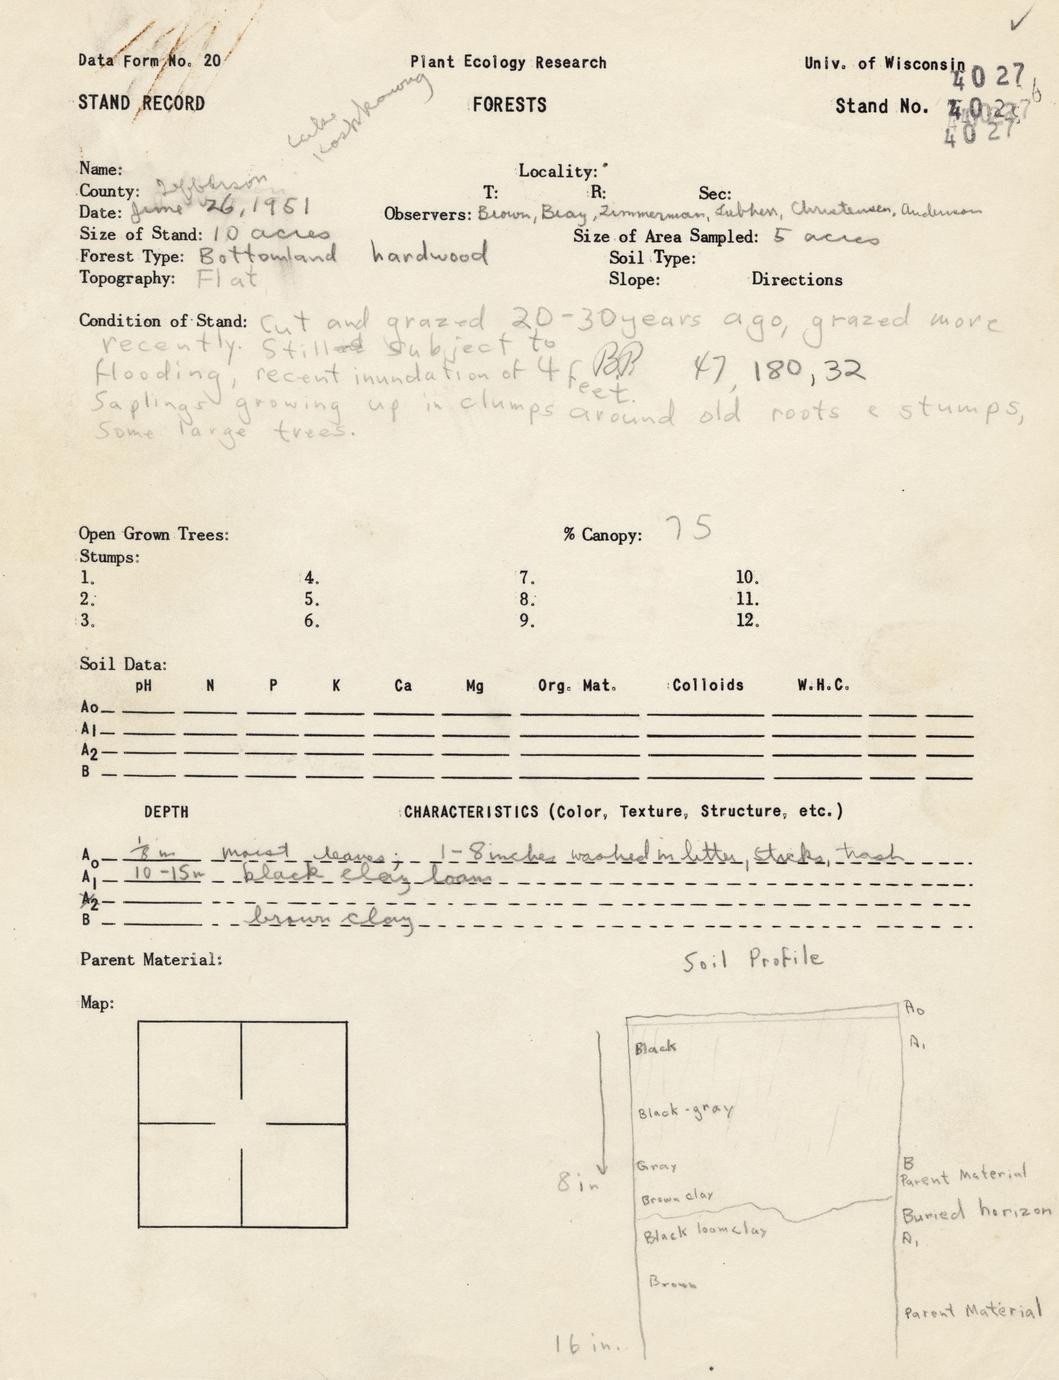 Data Form No. 20
Plant Ecology Research
Univ. of Wisconsin
4027
STAND RECORD
FORESTS
Stand No. 4027
4027
6
Lake
Koshkonong
Name:
Locality:
County: Jefferson
T: R: Sec:
Date: June 26, 1951
Observers: Brown, Bray, Zimmerman, Christensen, Anderson
Size of Stand: 10 acres
Size of Area Sampled: 5 acres
Forest Type: Bottomland hardwood
Soil Type:
Topography: Flat
Slope: Directions
Condition of Stand: Cut and grazed 20-30 years ago, grazed more
recently. Still subject to
flooding, recent inundation of 4 feet. BR 47, 180, 32
Saplings growing up in clumps around old roots & stumps,
Some large trees.
Open Grown Trees:
% Canopy: 75
Stumps:
1. 4. 7. 10.
2. 5. 8. 11.
3. 6. 9. 12.
Soil Data:
pH N P K Ca Mg Org. Mat. Colloids W.H.C.
Ao
A1
A2
B
DEPTH CHARACTERISTICS (Color, Texture, Structure, etc.)
Ao 1/8 in moist leaves; 1-8 inches washed in litter, sticks, trash
A1 10-15in black clay loam
A2
B brown clay
Parent Material:
Soil Profile
Map:
Ao
Black A1
Black-gray
Gray B
8 in Parent Material
Brown clay
Buried horizon
Black loam clay A1
Brown
Parent Material
16 in.